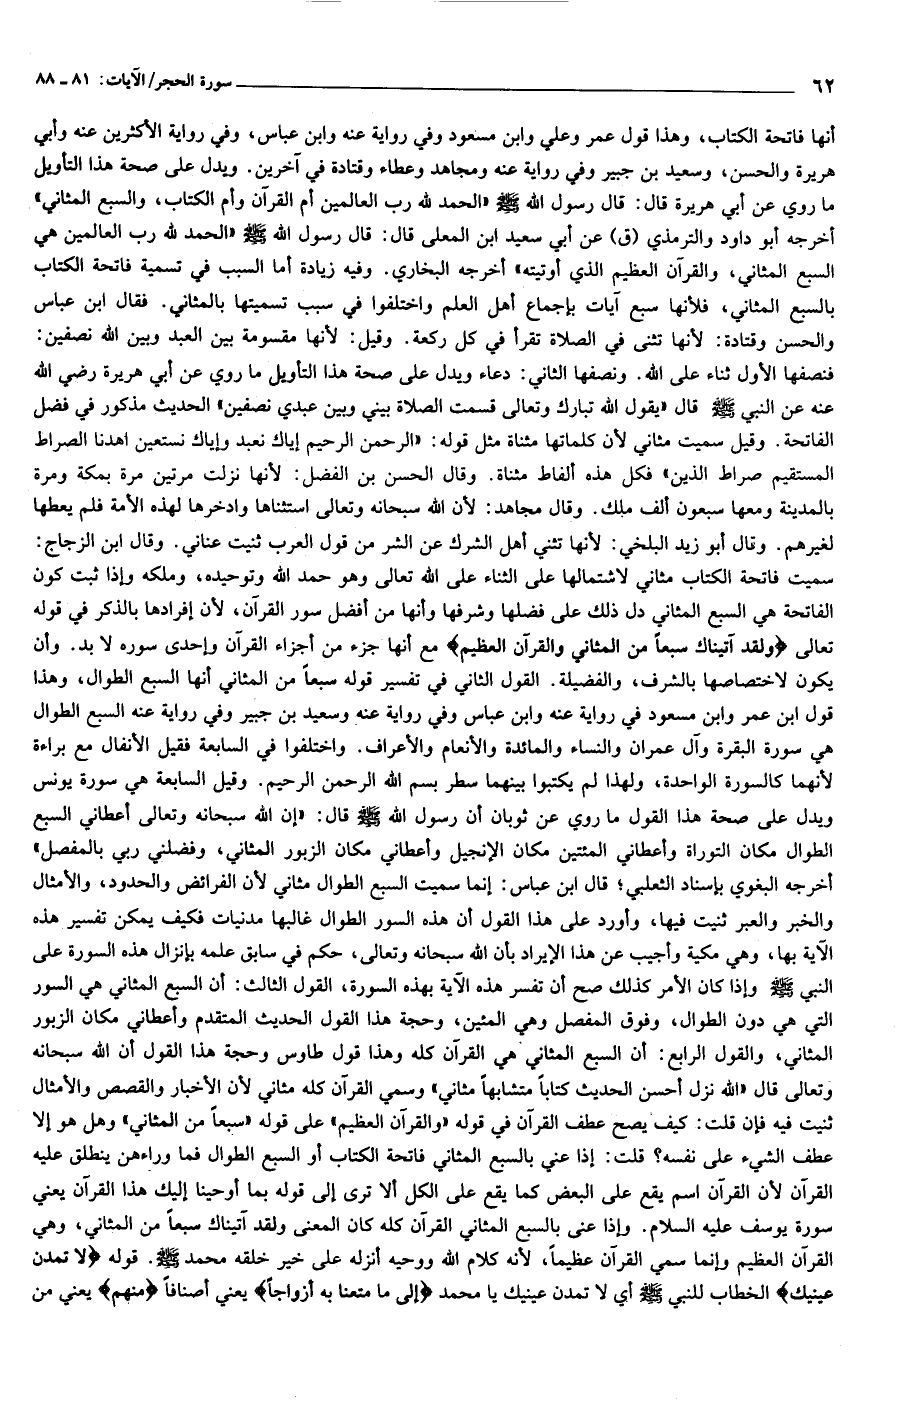 ٦٢ سورة الحجر/الآيات: ٨١ ـ ٨٨
أنها فاتحة الكتاب، وهذا قول عمر وعلي وابن مسعود وفي رواية عنه وابن عباس، وفي رواية الأكثرين عنه وأبي
هريرة والحسن، وسعيد بن جبير وفي رواية عنه ومجاهد وعطاء وقتادة في آخرين. ويدل على صحة هذا التأويل
ما روي عن أبي هريرة قال: قال رسول الله ﷺ «الحمد لله رب العالمين أم القرآن وأم الكتاب، والسبع المثاني»
أخرجه أبو داود والترمذي (ق) عن أبي سعيد ابن المعلى قال: قال رسول الله ﷺ «الحمد لله رب العالمين هي
السبع المثاني، والقرآن العظيم الذي أوتيته» أخرجه البخاري. وفيه زيادة أما السبب في تسمية فاتحة الكتاب
بالسبع المثاني، فلأنها سبع آيات بإجماع أهل العلم واختلفوا في سبب تسميتها بالمثاني. فقال ابن عباس
والحسن وقتادة: لأنها تثنى في الصلاة تقرأ في كل ركعة. وقيل: لأنها مقسومة بين العبد وبين الله نصفين:
فنصفها الأول ثناء على الله. ونصفها الثاني: دعاء ويدل على صحة هذا التأويل ما روي عن أبي هريرة رضي الله
عنه عن النبي ﷺ قال «يقول الله تبارك وتعالى قسمت الصلاة بيني وبين عبدي نصفين» الحديث مذكور في فضل
الفاتحة. وقيل سميت مثاني لأن كلماتها مثناة مثل قوله: «الرحمن الرحيم إياك نعبد وإياك نستعين اهدنا الصراط
المستقيم صراط الذين» فكل هذه ألفاط مثناة. وقال الحسن بن الفضل: لأنها نزلت مرتين مرة بمكة ومرة
بالمدينة ومعها سبعون ألف ملك. وقال مجاهد: لأن الله سبحانه وتعالى استثناها وادخرها لهذه الأمة فلم يعطها
لغيرهم. وقال أبو زيد البلخي: لأنها تثني أهل الشرك عن الشر من قول العرب ثنيت عناني. وقال ابن الزجاج:
سميت فاتحة الكتاب مثاني لاشتمالها على الثناء على الله تعالى وهو حمد الله وتوحيده، وملكه وإذا ثبت كون
الفاتحة هي السبع المثاني دل ذلك على فضلها وشرفها وأنها من أفضل سور القرآن، لأن إفرادها بالذكر في قوله
تعالى ﴿ولقد آتيناك سبعاً من المثاني والقرآن العظيم﴾ مع أنها جزء من أجزاء القرآن وإحدى سوره لا بد. وأن
يكون لاختصاصها بالشرف، والفضيلة. القول الثاني في تفسير قوله سبعاً من المثاني أنها السبع الطوال، وهذا
قول ابن عمر وابن مسعود في رواية عنه وابن عباس وفي رواية عنه وسعيد بن جبير وفي رواية عنه السبع الطوال
هي سورة البقرة وآل عمران والنساء والمائدة والأنعام والأعراف. واختلفوا في السابعة فقيل الأنفال مع براءة
لأنهما كالسورة الواحدة، ولهذا لم يكتبوا بينهما سطر بسم الله الرحمن الرحيم. وقيل السابعة هي سورة يونس
ويدل على صحة هذا القول ما روي عن ثوبان أن رسول الله ﷺ قال: «إن الله سبحانه وتعالى أعطاني السبع
الطوال مكان التوراة وأعطاني المئتين مكان الإنجيل وأعطاني مكان الزبور المثاني، وفضلني ربي بالمفصل»
أخرجه البغوي بإسناد الثعلبي؛ قال ابن عباس: إنما سميت السبع الطوال مثاني لأن الفرائض والحدود، والأمثال
والخبر والعبر ثنيت فيها، وأورد على هذا القول أن هذه السور الطوال غالبها مدنيات فكيف يمكن تفسير هذه
الآية بها، وهي مكية وأجيب عن هذا الإيراد بأن الله سبحانه وتعالى، حكم في سابق علمه بإنزال هذه السورة على
النبي ﷺ وإذا كان الأمر كذلك صح أن تفسر هذه الآية بهذه السورة، القول الثالث: أن السبع المثاني هي السور
التي هي دون الطوال، وفوق المفصل وهي المئين، وحجة هذا القول الحديث المتقدم وأعطاني مكان الزبور
المثاني، والقول الرابع: أن السبع المثاني هي القرآن كله وهذا قول طاوس وحجة هذا القول أن الله سبحانه
وتعالى قال «الله نزل أحسن الحديث كتاباً متشابهاً مثاني» وسمي القرآن كله مثاني لأن الأخبار والقصص والأمثال
ثنيت فيه فإن قلت: كيف يصح عطف القرآن في قوله «والقرآن العظيم» على قوله «سبعاً من المثاني» وهل هو إلا
عطف الشيء على نفسه؟ قلت: إذا عني بالسبع المثاني فاتحة الكتاب أو السبع الطوال فما وراءهن ينطلق عليه
القرآن لأن القرآن اسم يقع على البعض كما يقع على الكل ألا ترى إلى قوله بما أوحينا إليك هذا القرآن يعني
سورة يوسف عليه السلام. وإذا عنى بالسبع المثاني القرآن كله كان المعنى ولقد آتيناك سبعاً من المثاني، وهي
القرآن العظيم وإنما سمي القرآن عظيماً، لأنه كلام الله ووحيه أنزله على خير خلقه محمد ﷺ. قوله ﴿لا تمدن
عينيك﴾ الخطاب للنبي ﷺ أي لا تمدن عينيك يا محمد ﴿إلى ما متعنا به أزواجاً﴾ يعني أصنافاً ﴿منهم﴾ يعني من